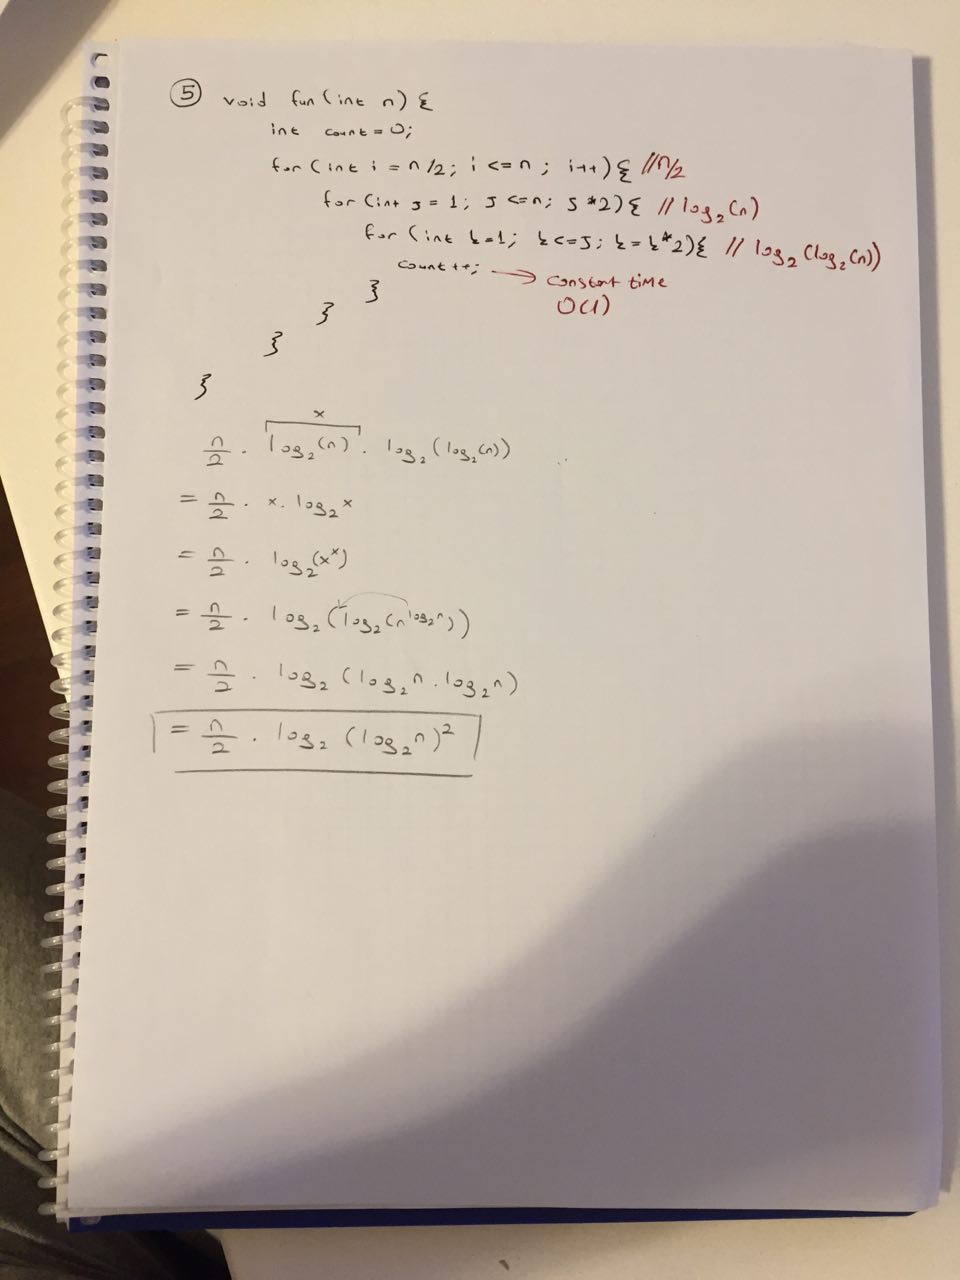 5 void fun(int n) {
int count = 0;
for (int i = n/2; i <= n; i++) { //n/2
for (int j = 1; j <= n; j*2) { // log₂(n)
for (int k=1; k<=j; k=k*2) { // log₂(log₂(n))
count++; → constant time
O(1)
}
}
}
}
x
n/2 · log₂(n) · log₂(log₂(n))
= n/2 · x · log₂x
= n/2 · log₂(xˣ)
= n/2 · log₂(log₂(n^log₂n))
= n/2 · log₂(log₂n · log₂n)
= n/2 · log₂(log₂n)²